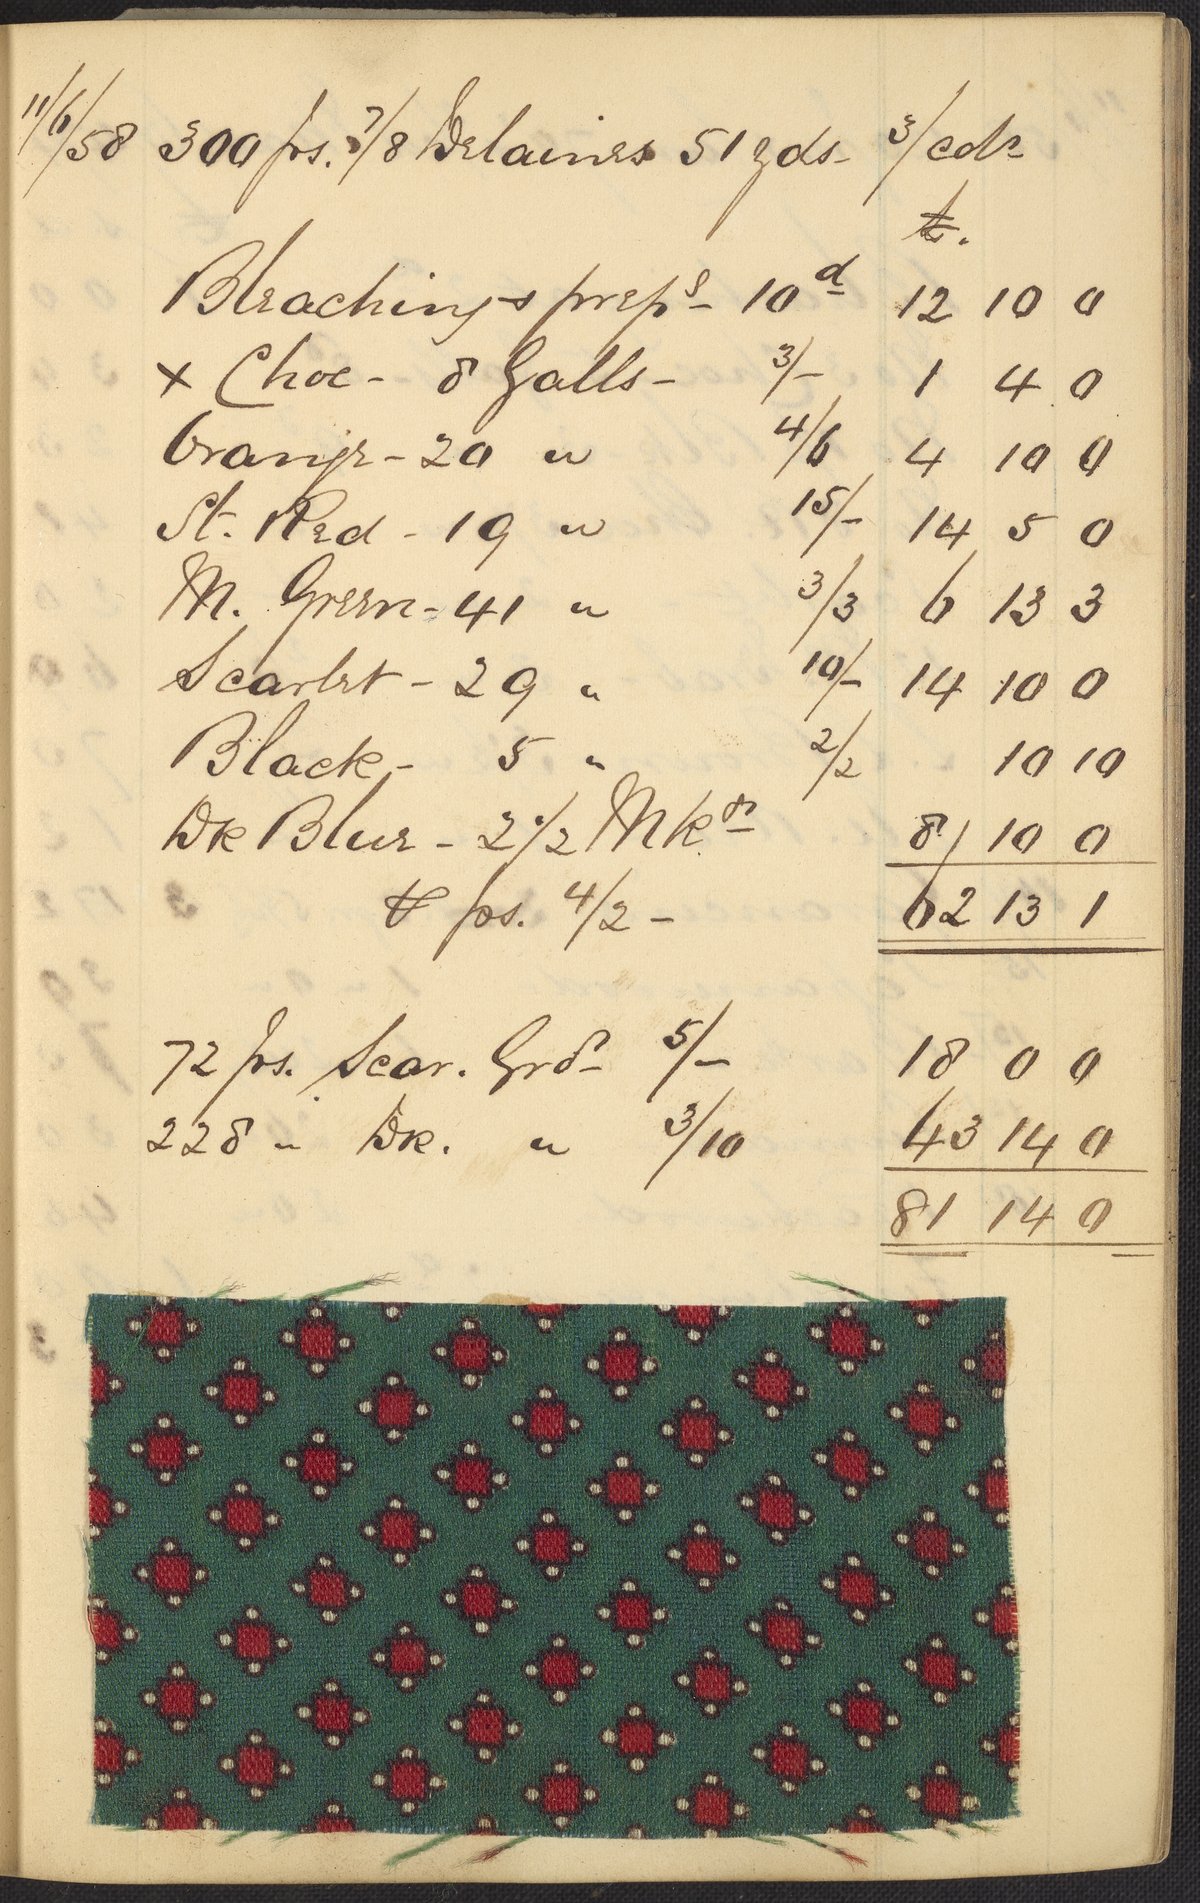 11/6/58 300 ps. 7/8 Delaines 51 yds- 3/cds
£.
Bleaching & preps- 10d 12 10 0
x Choc- 8 Galls- 3/- 1 4 0
Orange- 20 " 4/6 4 10 0
St. Red- 19 " 15/- 14 5 0
M. Green- 41 " 3/3 6 13 3
Scarlet- 29 " 10/- 14 10 0
Black- 5 " 2/2 10 10
Dk Blue- 2 1/2 Mks 8 10 0
ps. 4/2- 62 13 1
72 ps. Scar. Grd- 5/- 18 0 0
228 " Dk. " 3/10 43 14 0
81 14 0